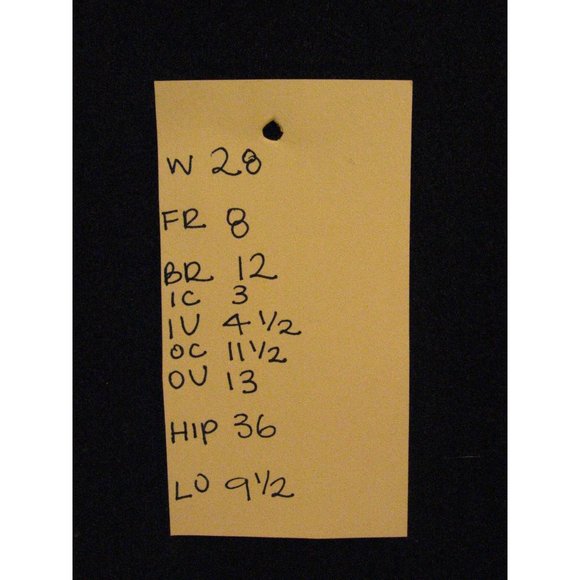 W 28
FR 8
BR 12
IC 3
IU 4 1/2
OC 11 1/2
OU 13
HIP 36
LO 9 1/2